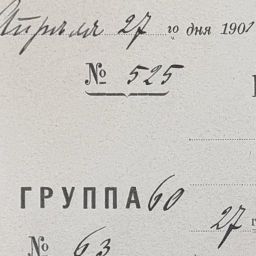 Апреля 27 го дня 190
№ 525
ГРУППА 60
27 г
№ 63